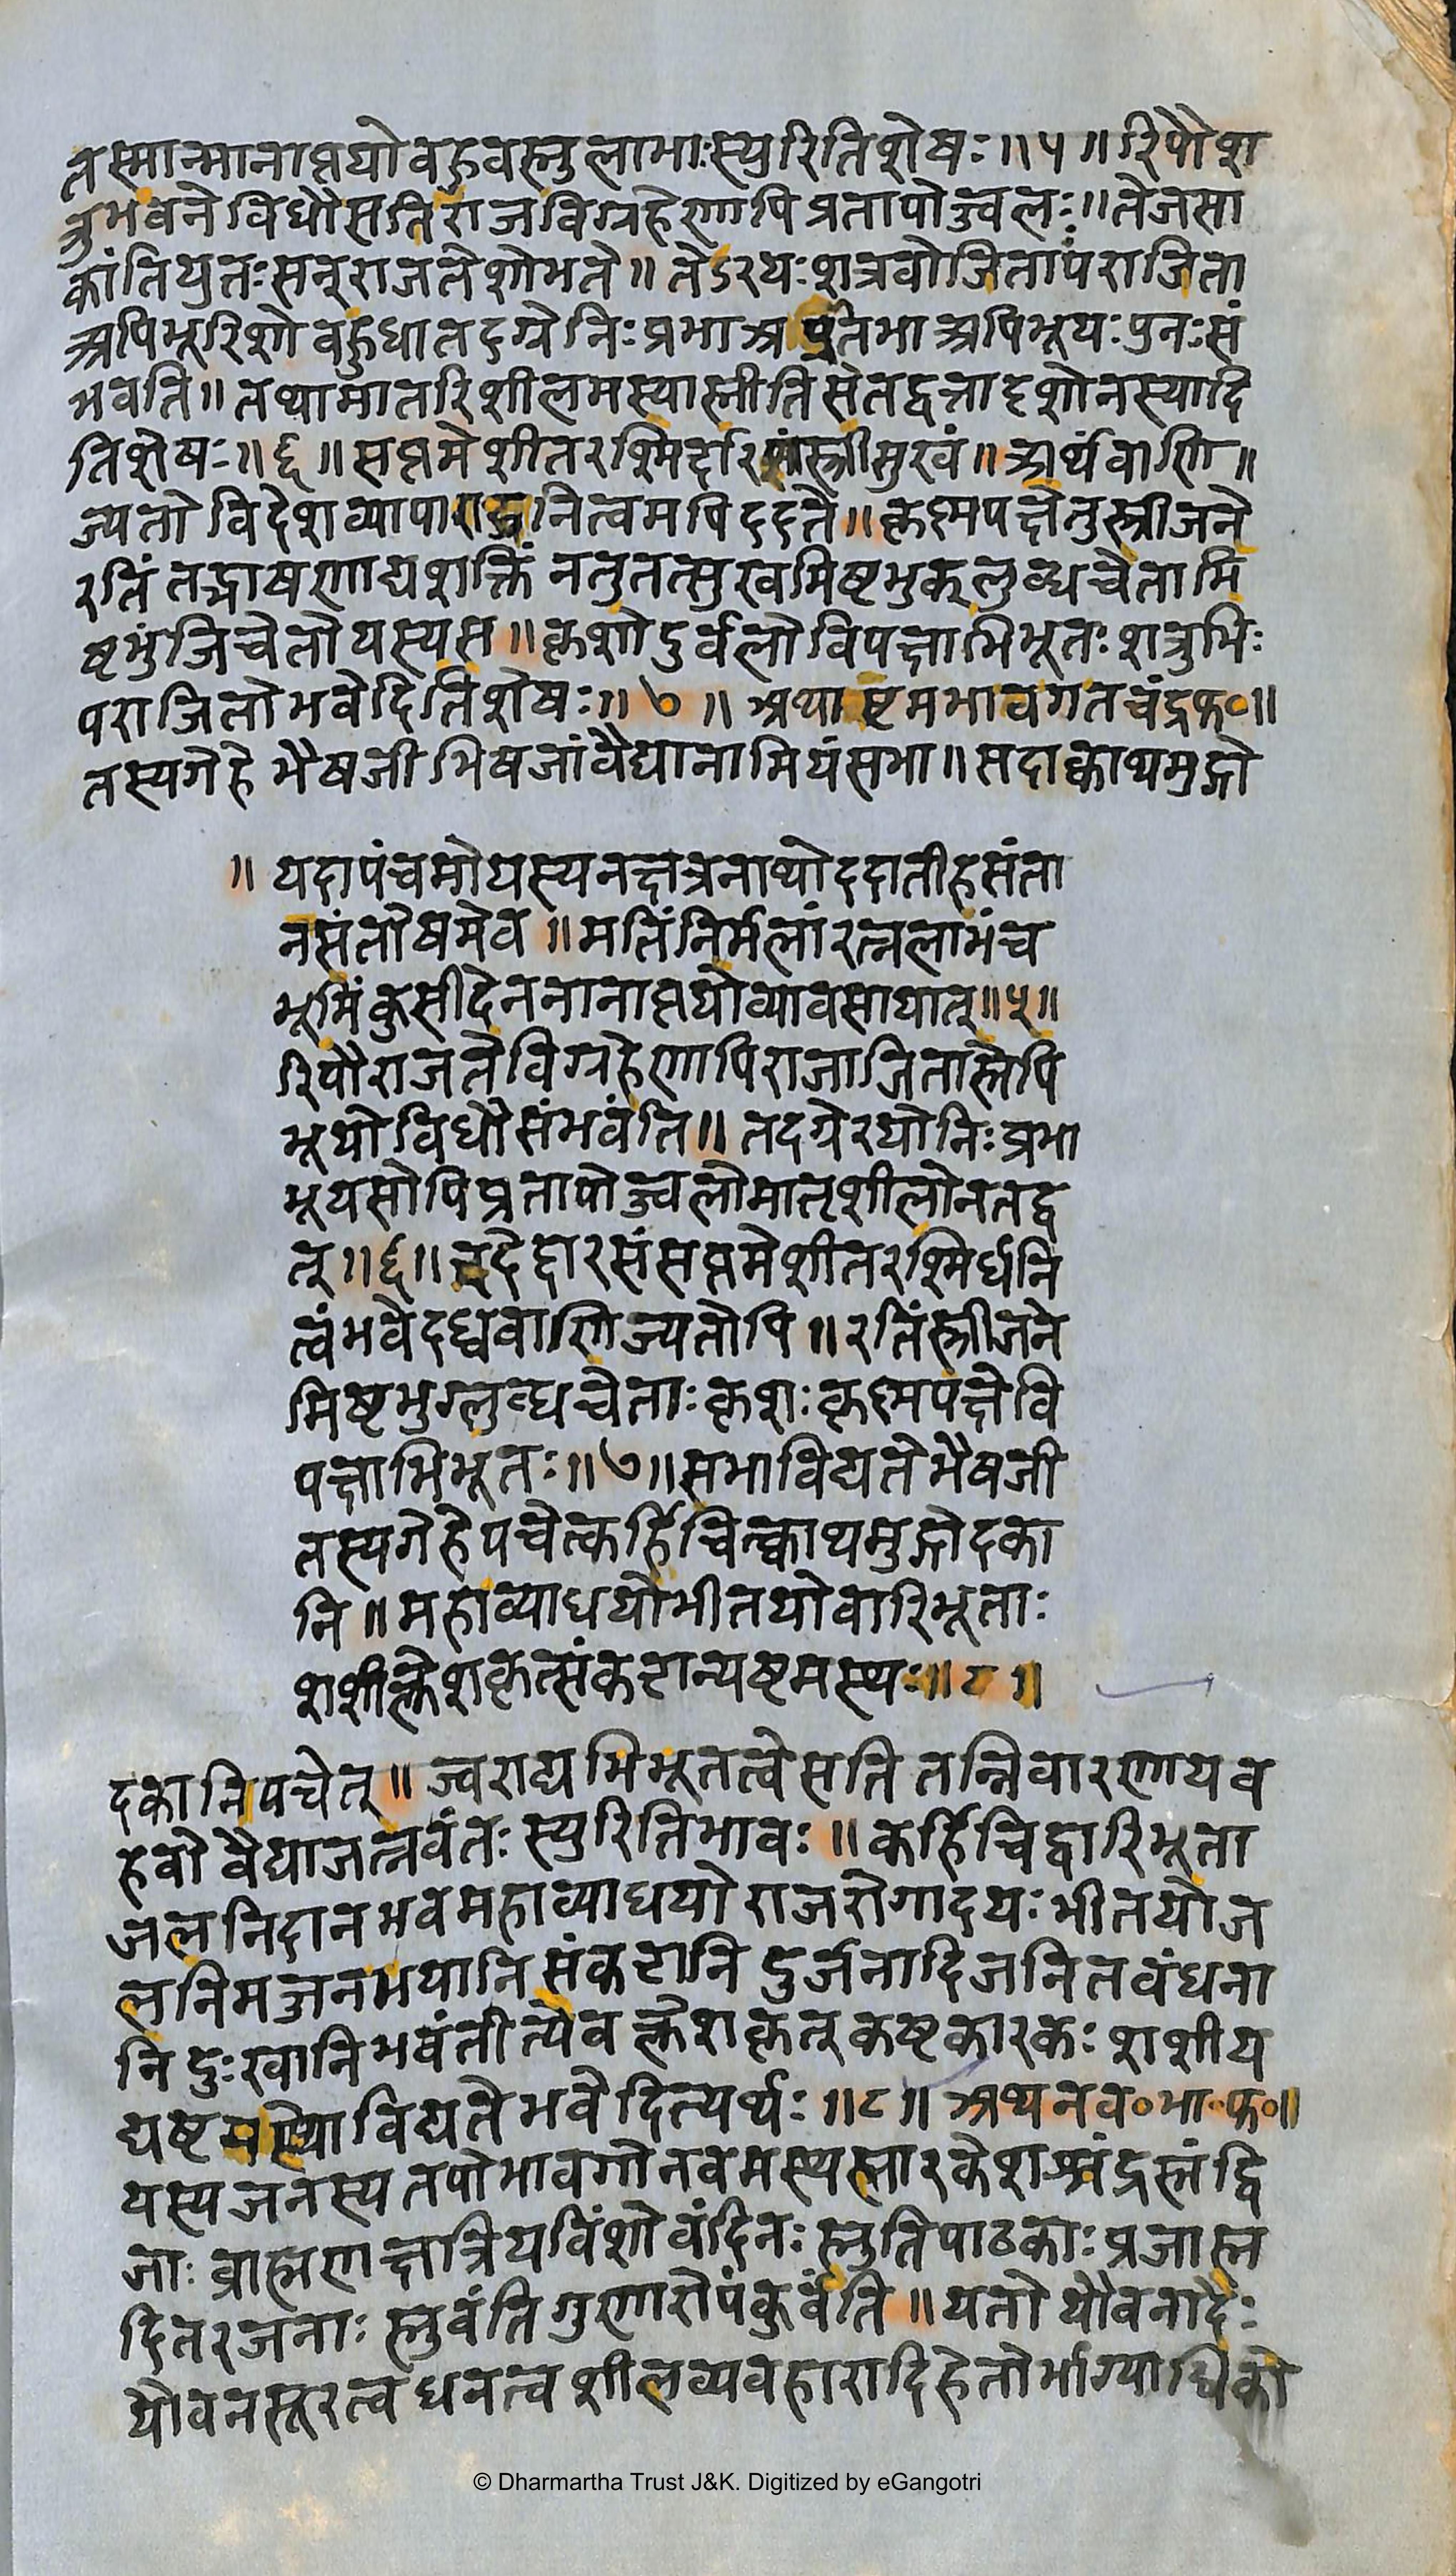 तस्मान्मानाप्तयो वहुवस्तुलाभाः स्युरितिशेषः ॥ ५ ॥ रिपौ श
त्रुभवने विधौ सति राजविग्रहेणापि प्रतापोज्वलः ॥ तेजसा
कांतियुतः सन् राजते शोभते ॥ तेऽरयः शत्रवो जिताः पराजिता
अपि भूरिशो वहुधा तदग्रे निःप्रभा अप्रतिभा अपि भूयः पुनः सं
भवति ॥ तथा मातरि शीलमस्यास्तीति स तद्वत्तादृशो न स्यादि
तिशेषः ॥ ६ ॥ सप्तमे शीतरश्मिर्द्दारसं स्त्रीसुखं ॥ अर्थ वाणि ॥
ज्यतो विदेशव्यापारा नित्वमपि ददते ॥ कृष्मपक्षे तु स्त्रीजने
रतिं तद्भाषणाद्यशक्तिं न तु तत्सुखमिष्टभुक् लुब्धचेता मि
ष्टभुंजि चेतो यस्य स ॥ कृशो दुर्वलो विपक्षाभिभूतः शत्रुभिः
पराजितो भवेदितिशेषः ॥ ७ ॥ अथाष्टमभावगतचंद्रफ॰ ॥
तस्य गेहे भैषजी भिषजां वैद्यानामियं सभा ॥ सदा क्वाथमुद्गो
॥ यदा पंचमो यस्य नक्षत्रनाथो ददातीह संता
नसंतोषमेव ॥ मतिं निर्मलां रत्नलाभं च
भूमिं कुसीदेन नानाप्तयो व्यावसायात् ॥ ५ ॥
रिपौ राजते विग्रहेणापि राजा जितास्तेपि
भूयो विधौ संभवंति ॥ तदग्रेरयो निःप्रभा
भूयसोपि प्रतापोज्वलो मातृशीलो न तद्व
त् ॥ ६ ॥ ददेद्दारसं सप्तमे शीतरश्मिर्धनि
त्वं भवेदध्ववाणिज्यतोपि ॥ रतिं स्त्रीजने
मिष्टभुग्लुब्धचेताः कृशः कृष्मपक्षे वि
पक्षाभिभूतः ॥ ७ ॥ सभा विद्यते भैषजी
तस्य गेहे पचेत्कर्हिचित्क्वाथमुद्गोदका
नि ॥ महाव्याधयो भीतयो वारिभूताः
शशी क्लेशकृत्संकटान्यष्टमस्थः ॥ ८ ॥
दकानि पचेत् ॥ ज्वराद्यभिभूतत्वे सति तन्निवारणाय व
हवो वैद्या जत्नवंतः स्युरितिभावः ॥ कर्हिचिद्वारिभूता
जलनिदानभवे महाव्याधयो राजरोगादयः भीतयो ज
लनिमज्जनभयानि संकटानि दुर्जनादिजनितवंधना
नि दुःखानि भवंतीत्येव क्लेशकृत् कष्टकारकः शशी य
द्यष्टमस्थो विद्यते भवेदित्यर्थः ॥ ८ ॥ अथ नव॰ भा॰ फ॰ ॥
यस्य जनस्य तपोभावगो नवमस्थस्तारकेशश्चंद्रस्तं द्वि
जाः व्राह्मणक्षत्रियविंशो वंदिनः स्तुतिपाठकाः प्रजास्त
दितरजनाः स्तुवंति गुणारोपं कुर्वंति ॥ यतो यौवनादेः
यौवनसूरत्वधनत्वशीलव्यवहारादिहेतोर्भाग्याधिको
© Dharmartha Trust J&K. Digitized by eGangotri